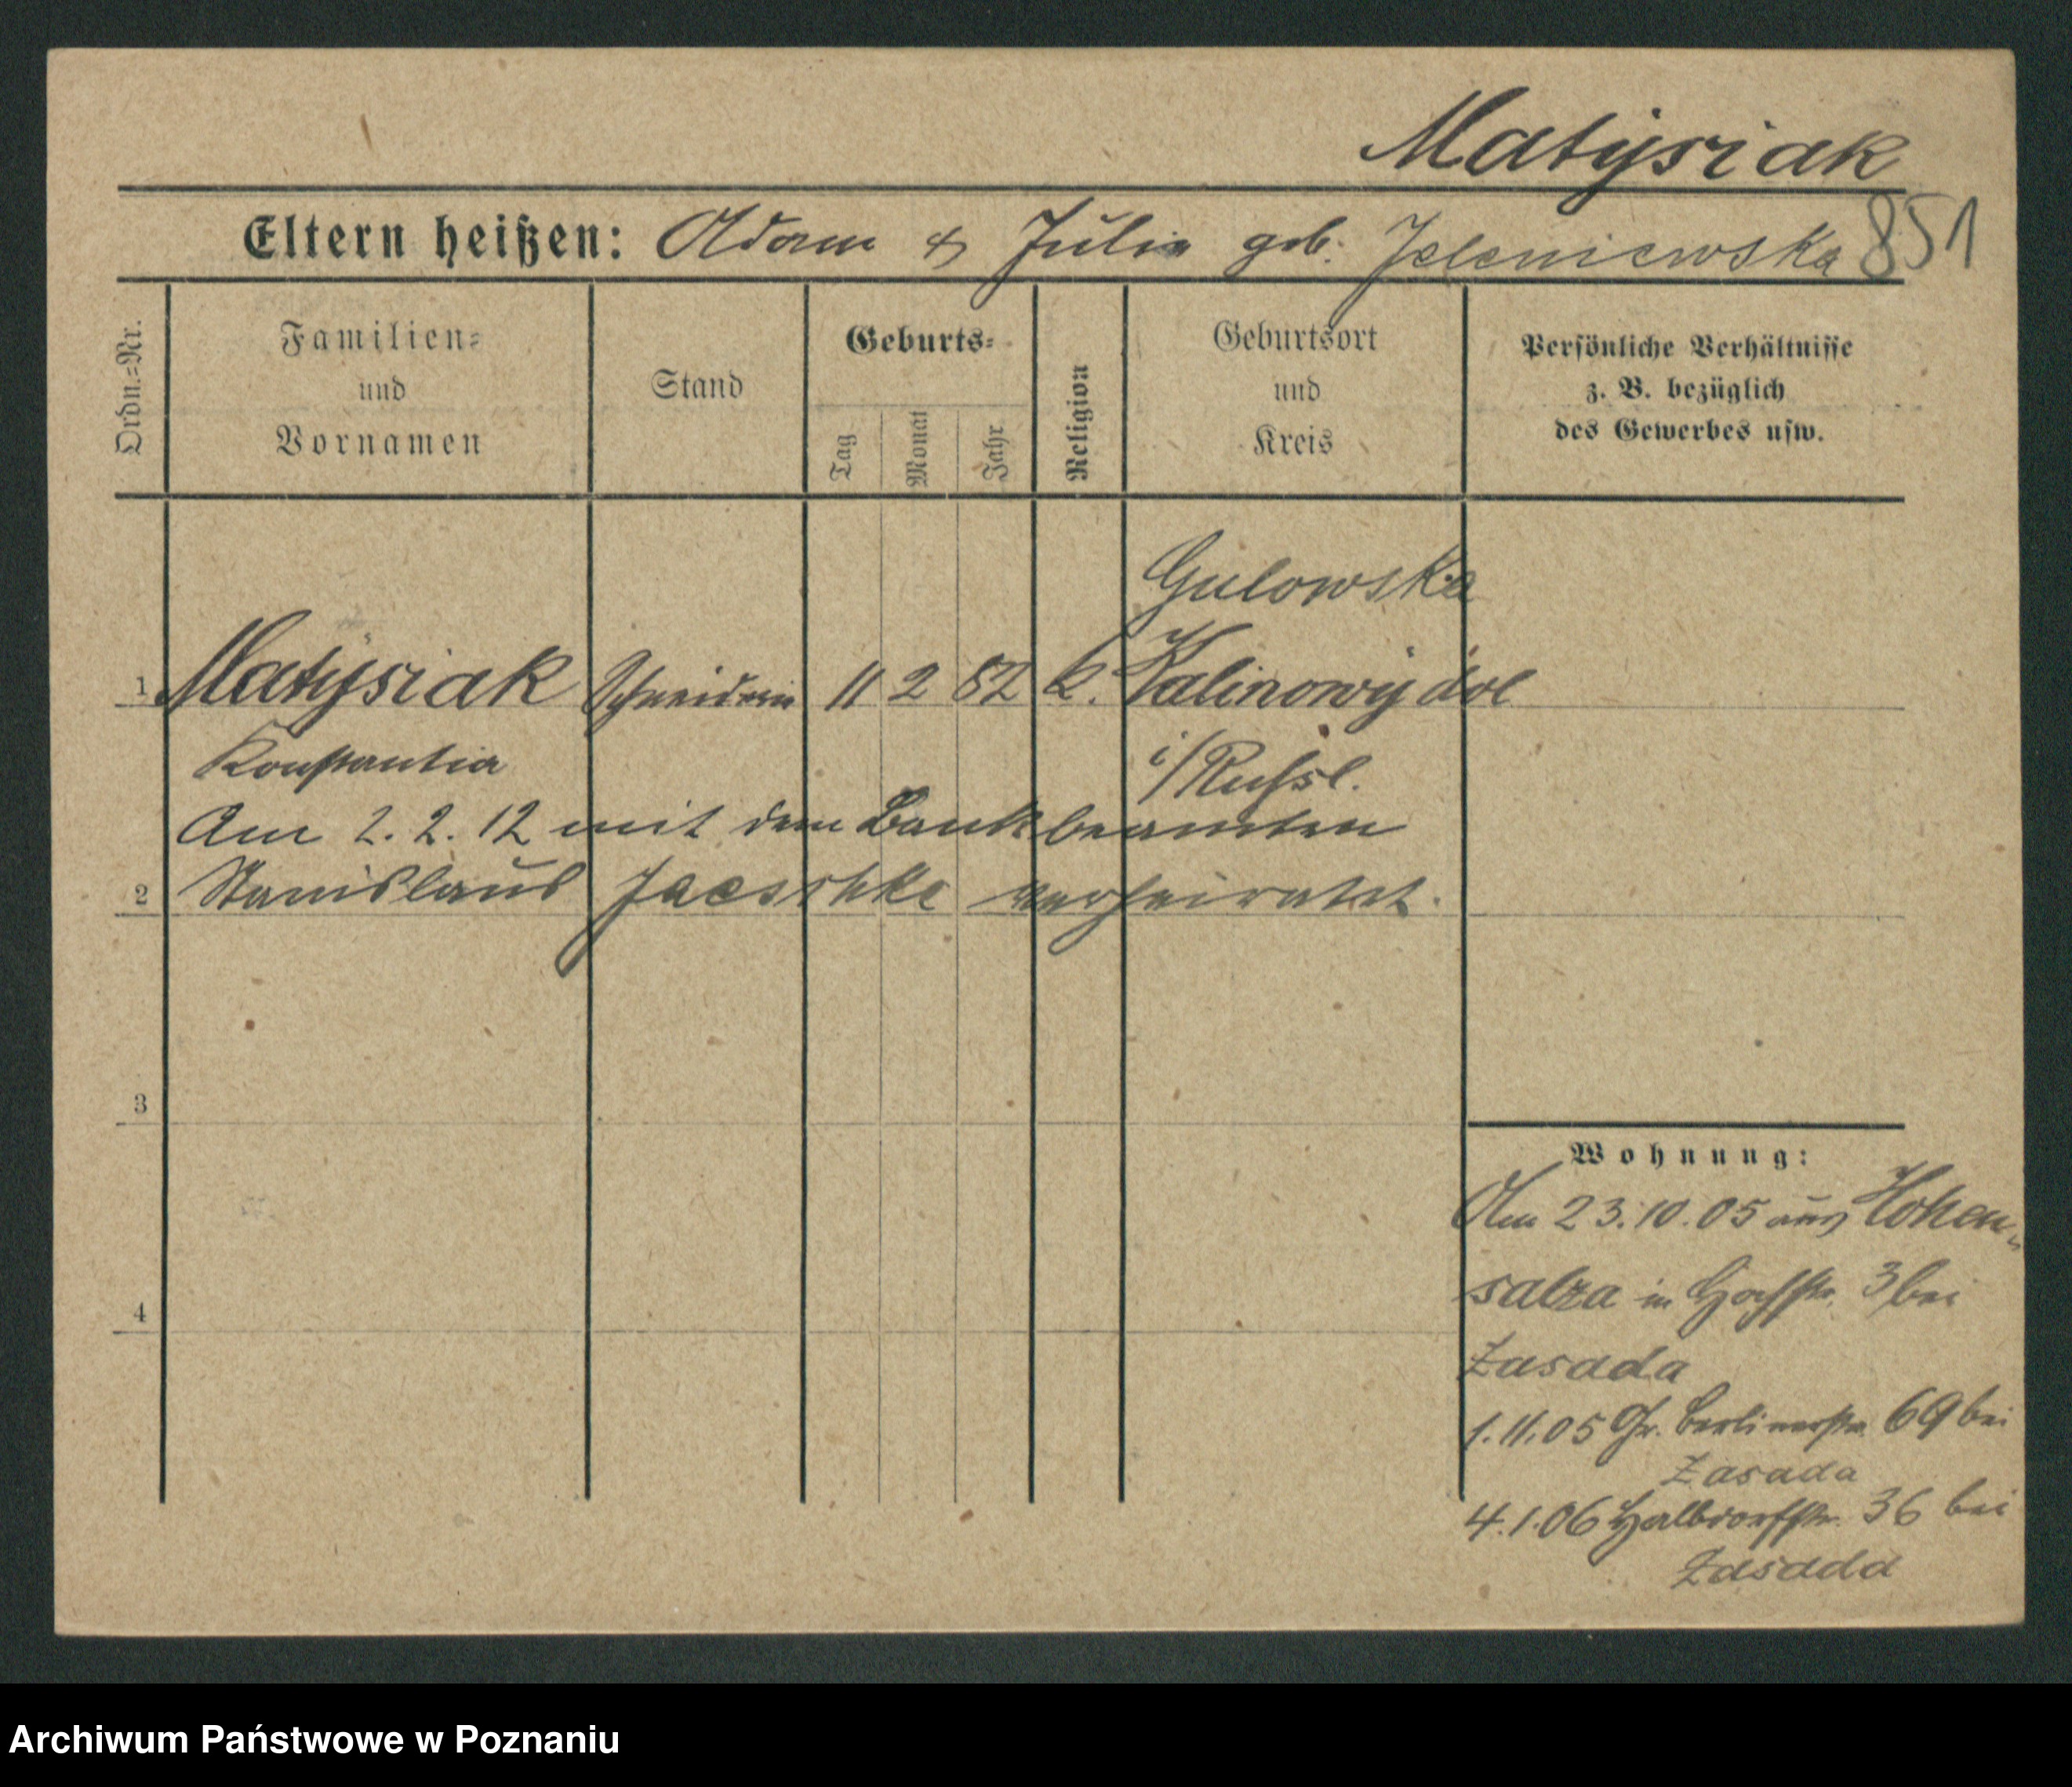 Matysiak
Eltern heißen: Adam & Julia geb. Jeleniewska 851
Ordn.=Nr.
Familien=
und
Vornamen
Stand
Geburts=
Tag
Monat
Jahr
Religion
Geburtsort
und
Kreis
Persönliche Verhältnisse
z. B. bezüglich
des Gewerbes usw.
Gulowska
1 Matysiak Schneiderin 11 2 82 k. Kalinowy dol
Konstantia i/Russl.
Am 2. 2. 12 mit dem Bankbeamten
2 Stanislaus Jaeschke verheiratet.
3
4
Wohnung:
Am 23.10.05 aus Hohen„
salza in Hochstr. 3 bei
Zasada
1.11.05 Gr. Berlinerstr. 69 bei
Zasada
4.1.06 Halbdorfstr. 36 bei
Zasada
Archiwum Państwowe w Poznaniu